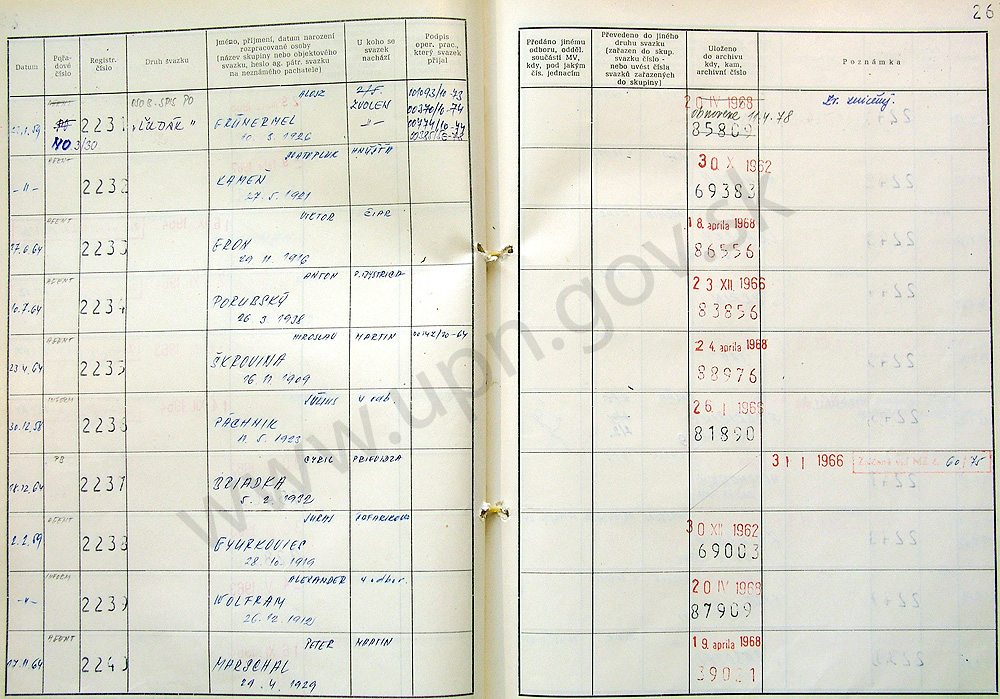 26
Datum
Pořa-
dové
číslo
Registr.
číslo
Druh svazku
Jméno, příjmení, datum narození
rozpracované osoby
(název skupiny nebo objektového
svazku, heslo ag. pátr. svazku
na neznámého pachatele)
U koho se
svazek
nachází
Podpis
oper. prac.,
který svazek
přijal
Předáno jinému
odboru, odděl.
součásti MV,
kdy, pod jakým
čís. jednacím
Převedeno do jiného
druhu svazku
(zařazen do skup.
svazku číslo -
nebo uvést čísla
svazků zařazených
do skupiny)
Uloženo
do archivu
kdy, kam,
archivní číslo
Poznámka
2231
"ĽUDÁK"
ALOJZ
10. 3. 1926
ZVOLEN
20 IV 1968
11.4.78
85809
Zv. zničený.
AGENT
-"-
2232
SVATOPLUK
KAMEŇ
27. 5. 1921
HNÚŠŤA
30. X 1962
69383
AGENT
27.6.64
2233
VIKTOR
29 11 1916
ČIAR
18. apríla 1968
86556
AGENT
10.7.64
2234
ANTON
PORUBSKÝ
26 3. 1938
B.BYSTRICA
23 XII 1966
83856
AGENT
23.4.64
2235
MIROSLAV
ŠKROVINA
16 11. 1909
MARTIN
24. apríla 1968
88976
INFORM
30.12.58
2236
JÚLIUS
PÁCHNIK
11. 5. 1923
V odb.
26. I 1966
81890
PB
18.12.64
2237
CYRIL
BRIADKA
5. 2. 1932
PRIEVIDZA
31 I 1966
60/75
AGENT
2.2.59
2238
JURAJ
GYURKOVICS
28. 10. 1919
30 XII 1962
69003
INFORM
-"-
2239
ALEXANDER
WOLFRAM
26. 12. 1912
V odbor.
20 IV 1968
87909
AGENT
17.11.64
2240
PETER
MARSCHAL
29. 4. 1929
MARTIN
19. apríla 1968
39031
www.upn.gov.sk